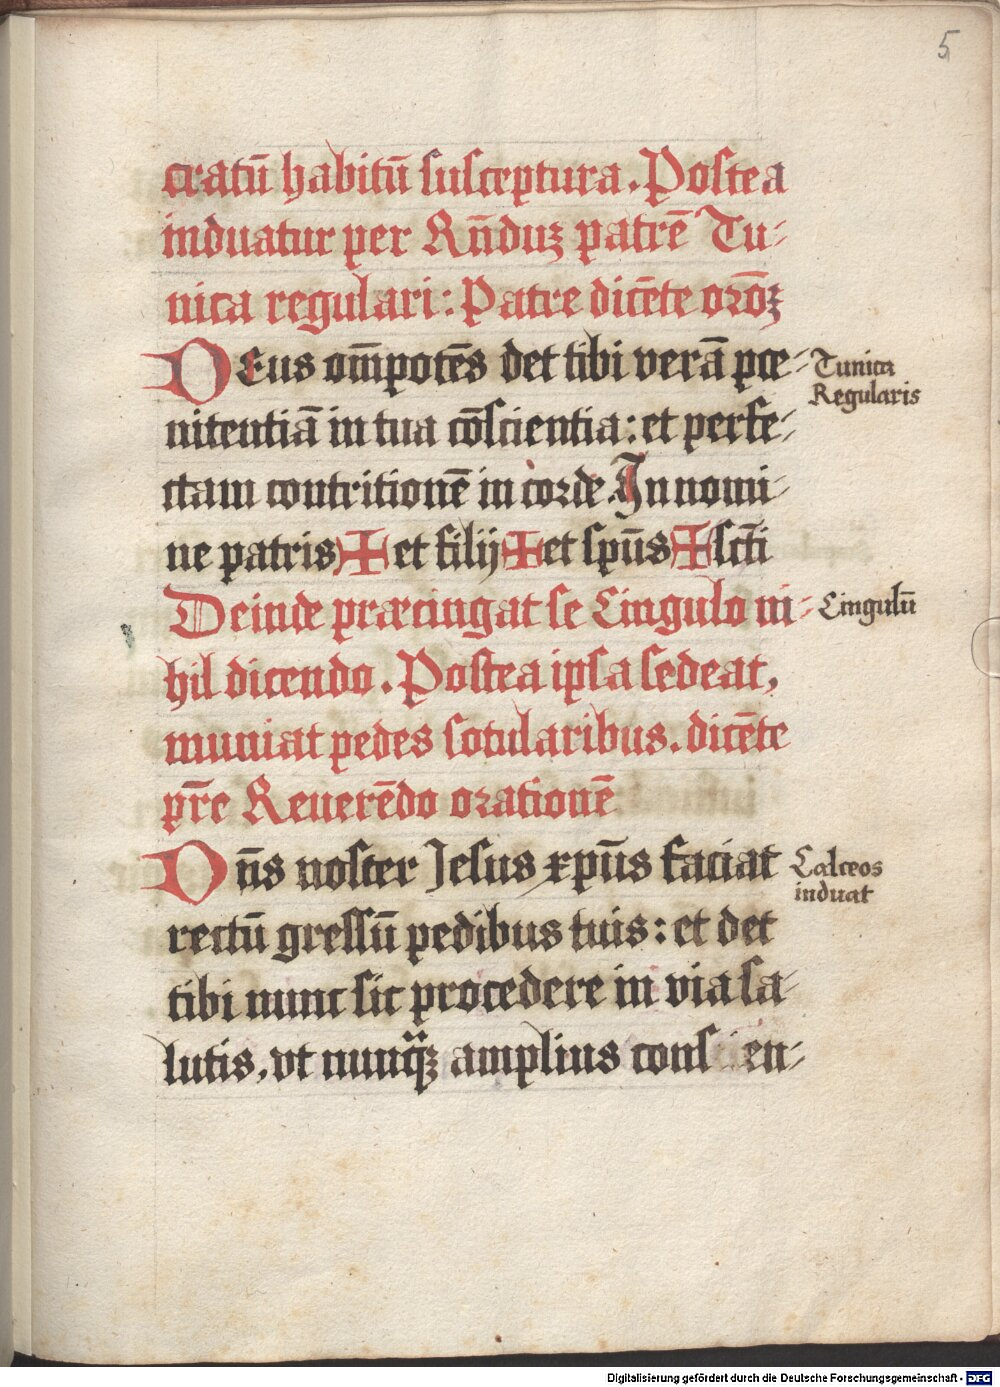 5
cratū habitū susceptura. Postea
induatur per Rn̄duꝫ patrē Tu-
nica regulari: Patre dicēte oꝛōꝫ
DEus om̄potēs det tibi verā pœ-
Tunica
Regularis
nitentiā in tua cōscientia: et perfe-
ctam contritionē in corde. In nomi-
ne patris ✠ et filij ✠ et spūs ✠ scti̅
Deinde præcingat se Cingulo ni-
Cingulū
hil dicendo. Postea ipsa sedeat,
muniat pedes sotularibus. dicēte
pr̄e Reuerēdo orationē
Dn̄s noster Jesus xpūs faciat
Calceos
induat
rectū gressū pedibus tuis: et det
tibi nunc sic procedere in via sa-
lutis, vt nunq̈ꝫ amplius cons en-
Digitalisierung gefördert durch die Deutsche Forschungsgemeinschaft - DFG